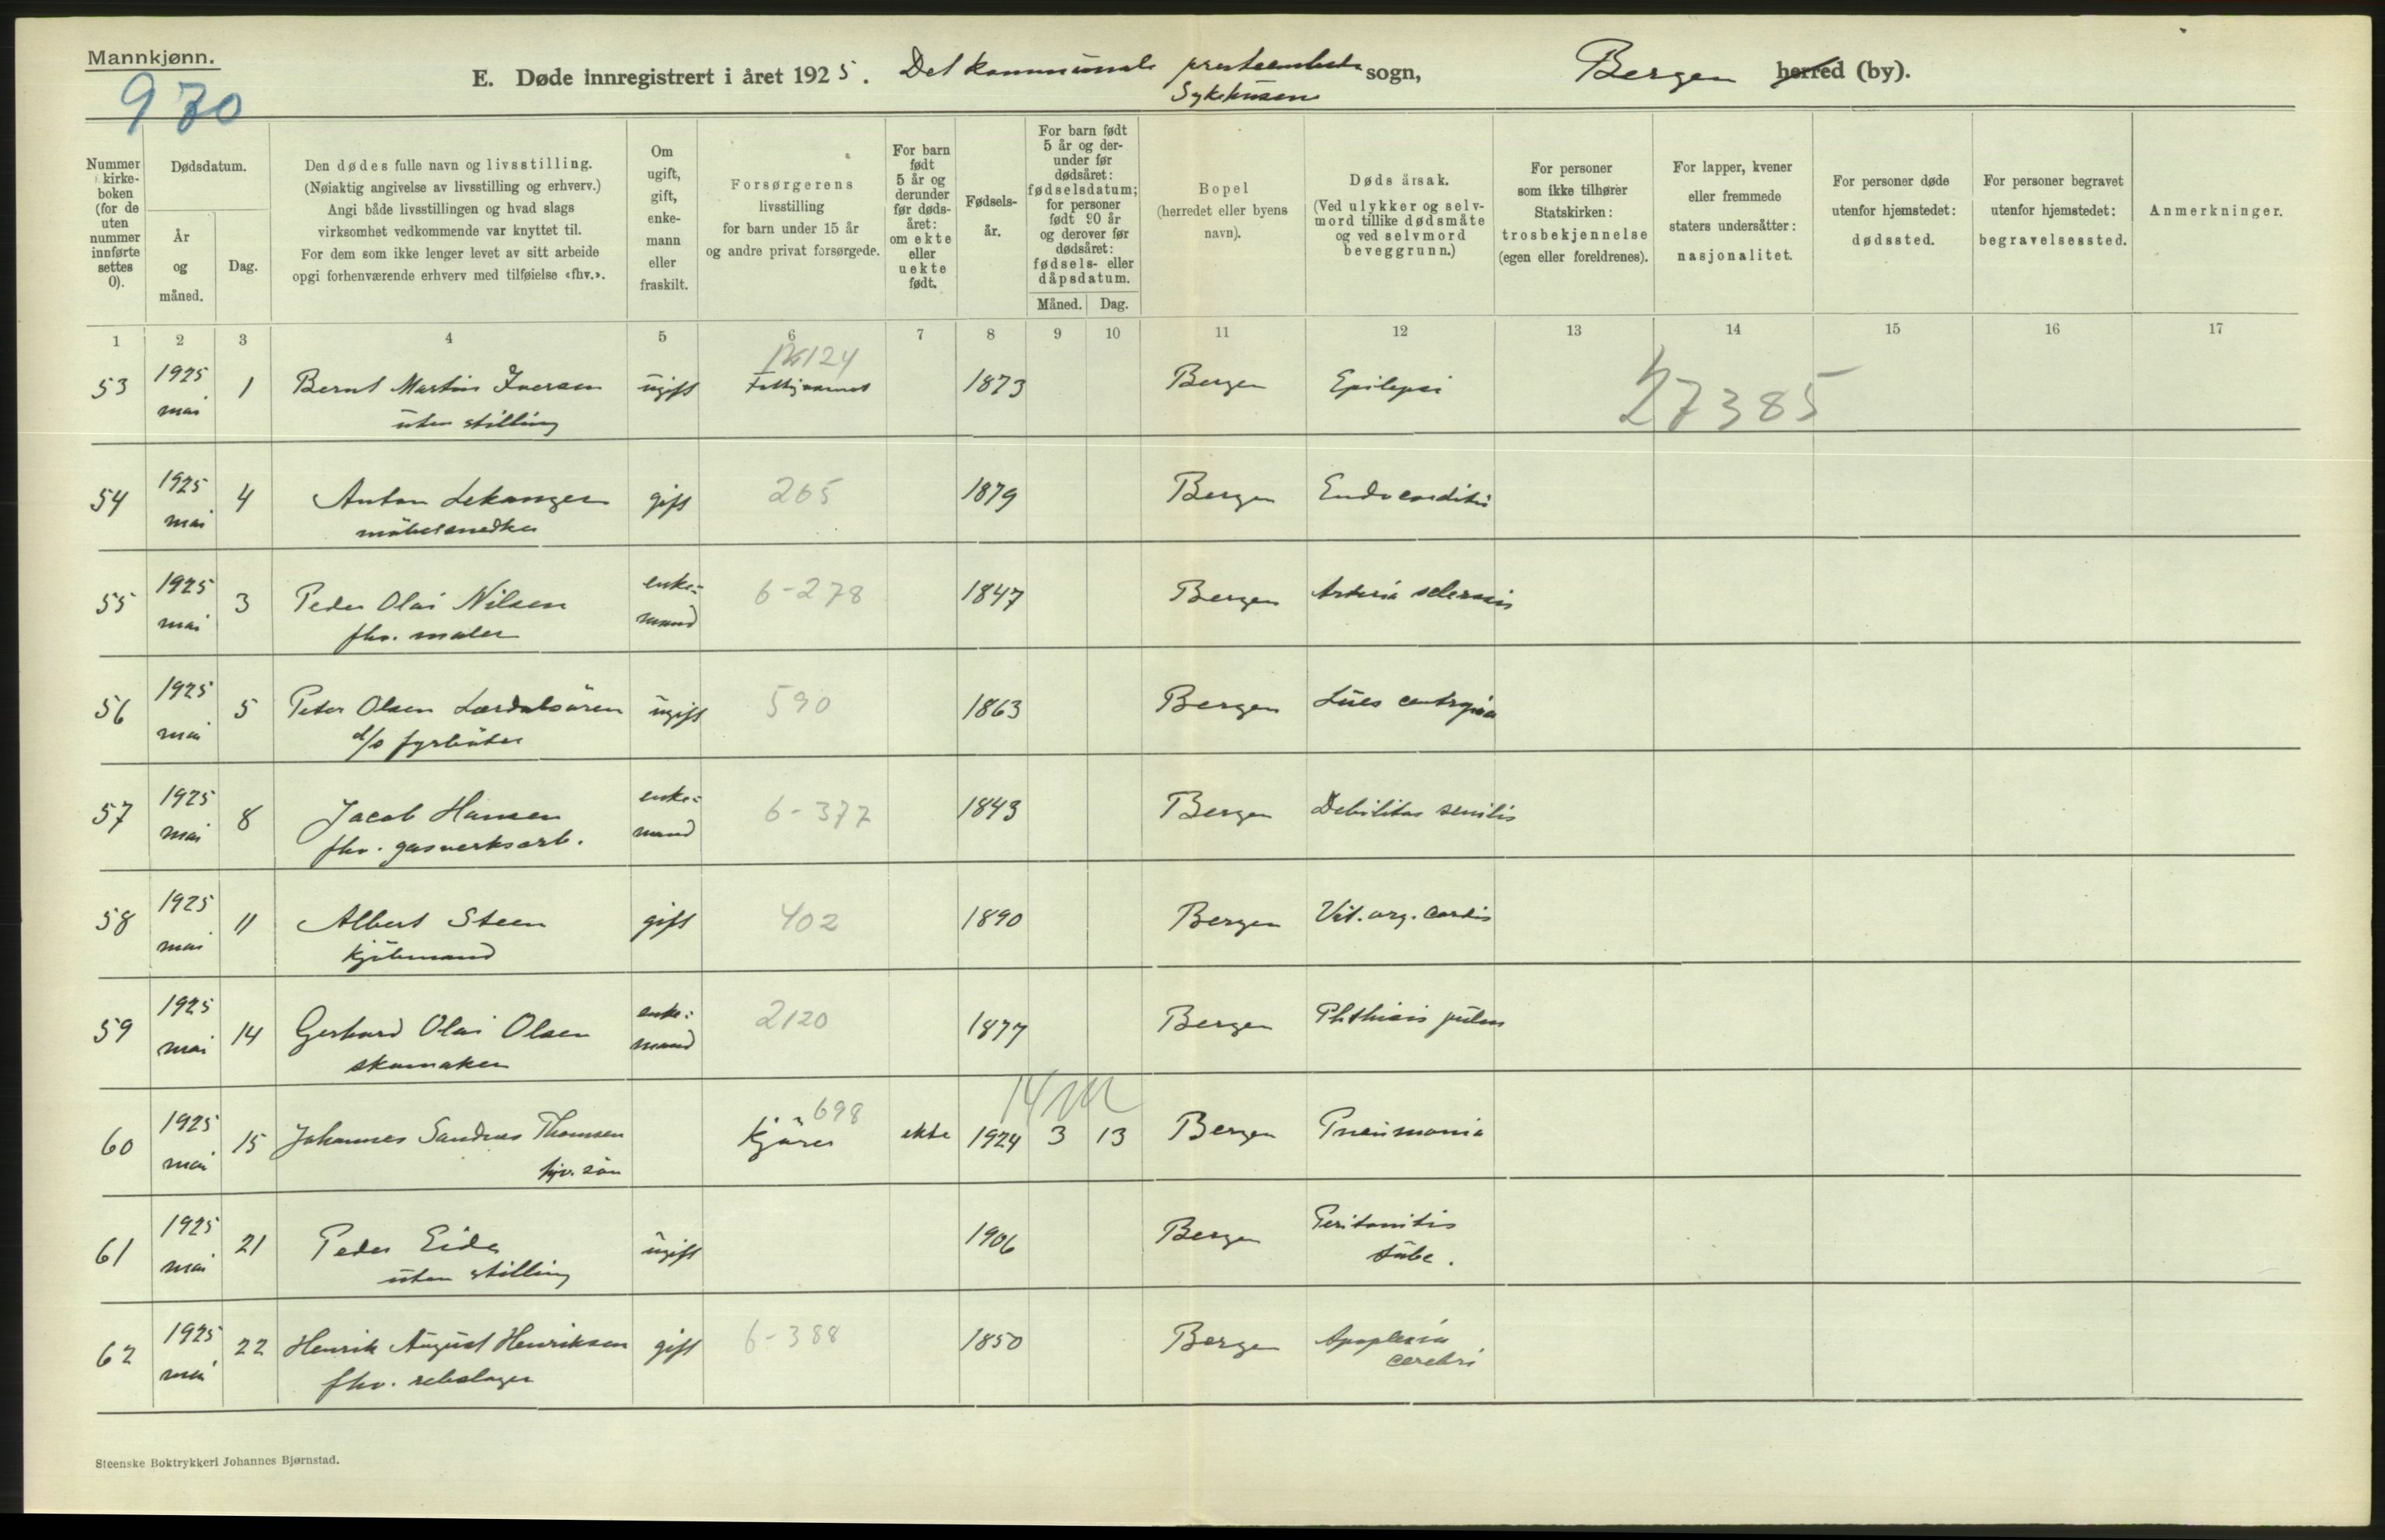 Mannkjønn.
970
E. Døde innregistrert i året 1925. Det kommunale presteembede sogn, Bergen herred (by).
Sykehusene
Nummer i kirkeboken (for de uten nummer innførte settes 0).
Dødsdatum.
År og måned.
Dag.
Den dødes fulle navn og livsstilling.
(Nøiaktig angivelse av livsstilling og erhverv.)
Angi både livsstillingen og hvad slags
virksomhet vedkommende var knyttet til.
For dem som ikke lenger levet av sitt arbeide
opgi forhenværende erhverv med tilføielse «fhv.».
Om ugift, gift, enkemann eller fraskilt.
Forsørgerens
livsstilling
for barn under 15 år
og andre privat forsørgede.
For barn født 5 år og derunder før dødsåret: om ekte eller uekte født.
Fødselsår.
For barn født 5 år og derunder før dødsåret: fødselsdatum; for personer født 90 år og derover før dødsåret: fødsels- eller dåpsdatum.
Måned. Dag.
Bopel
(herredet eller byens
navn).
Dødsårsak.
(Ved ulykker og selvmord tillike dødsmåte
og ved selvmord
beveggrunn.)
For personer
som ikke tilhører
Statskirken:
trosbekjennelse
(egen eller foreldrenes).
For lapper, kvener
eller fremmede
staters undersåtter:
nasjonalitet.
For personer døde
utenfor hjemstedet:
dødssted.
For personer begravet
utenfor hjemstedet:
begravelsessted.
Anmerkninger.
1 2 3 4 5 6 7 8 9 10 11 12 13 14 15 16 17
53 1925 mai 1 Bernt Martin Iversen ugift 1873 Bergen Epilepsi 27385
uten stilling
54 1925 mai 4 Anton Lekanger gift 265 1879 Bergen Endocarditis
möbelsnedker
55 1925 mai 3 Peder Olai Nilsen enke-mand 6-278 1847 Bergen Arteria sclerosis
fhv. maler
56 1925 mai 5 Peter Olsen Lærdalsören ugift 590 1863 Bergen Lues
d/s fyrböter
57 1925 mai 8 Jacob Hansen enke-mand 6-377 1843 Bergen Debilitas senilis
fhv. gasverksarb.
58 1925 mai 11 Albert Steen gift 402 1890 Bergen Vit. org. cordis
kjöbmand
59 1925 mai 14 Gerhard Olai Olsen enke-mand 2120 1877 Bergen Phthisis pulm
skomaker
60 1925 mai 15 Johannes Sandnes Thomsen 698 kjörer ekte 1924 3 13 14 m Bergen Pneumonia
hjv. sön
61 1925 mai 21 Peder Eide ugift 1906 Bergen Peritonitis
uten stilling tube.
62 1925 mai 22 Henrik August Henriksen gift 6-388 1850 Bergen Apoplexia
fhv. rebslager cerebri
Steenske Boktrykkeri Johannes Bjørnstad.